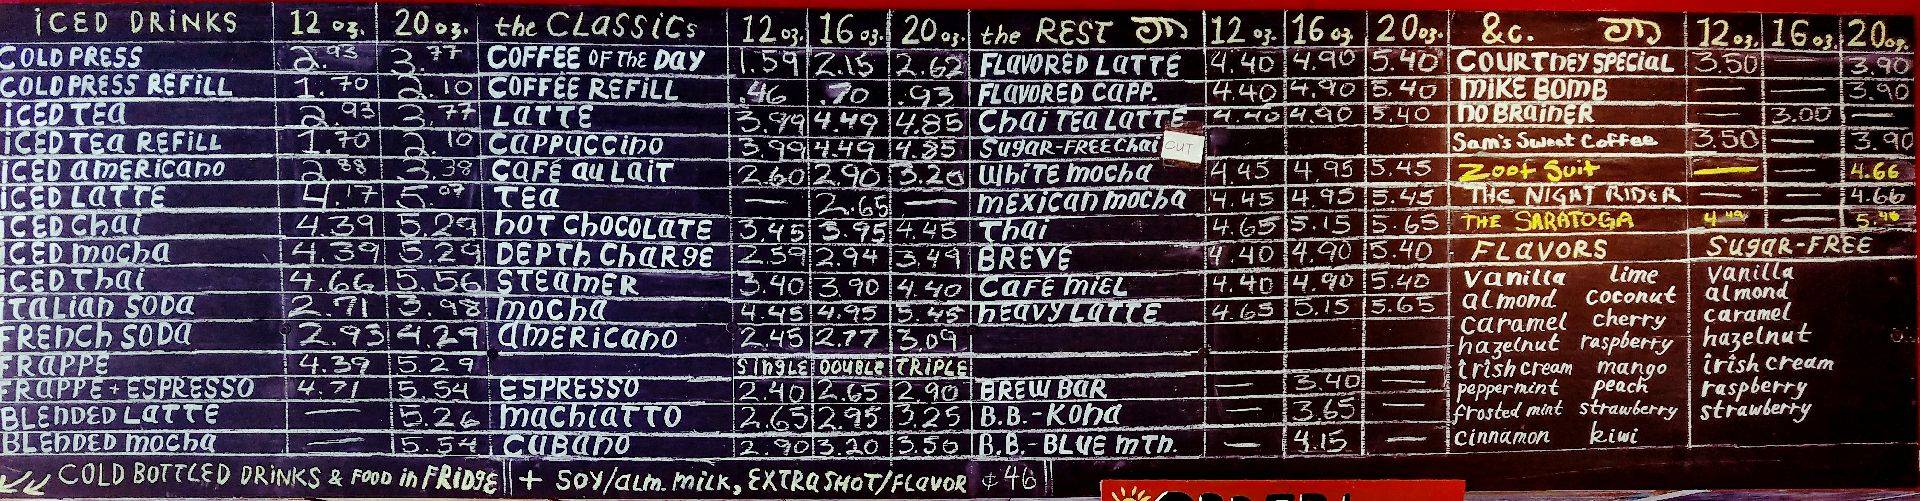 ICED DRINKS 12 oz. 20 oz. the CLASSICS 12 oz. 16 oz. 20 oz. the REST 12 oz. 16 oz. 20 oz. &c. 12 oz. 16 oz. 20 oz.
COLD PRESS 2.93 3.77 COFFEE OF THE DAY 1.59 2.15 2.62 FLAVORED LATTE 4.40 4.90 5.40 COURTNEY SPECIAL 3.50 3.90
COLD PRESS REFILL 1.70 2.10 COFFEE REFILL .46 .70 .93 FLAVORED CAPP. 4.40 4.90 5.40 MIKE BOMB — — 3.90
ICED TEA 2.93 3.77 LATTE 3.99 4.49 4.85 Chai TEA LATTE 4.40 4.90 5.40 NO BRAINER — 3.00 —
ICED TEA REFILL 1.70 2.10 CAPPUCCINO 3.99 4.49 4.85 SUGAR-FREE Chai OUT Sam's Sweet Coffee 3.50 — 3.90
ICED AMERICANO 2.88 3.38 CAFÉ au LAIT 2.60 2.90 3.20 WHITE MOCHA 4.45 4.95 5.45 Zoot Suit — — 4.66
ICED LATTE 4.17 5.07 TEA — 2.65 — MEXICAN MOCHA 4.45 4.95 5.45 THE NIGHT RIDER — — 4.66
ICED Chai 4.39 5.29 HOT CHOCOLATE 3.45 3.95 4.45 THAI 4.65 5.15 5.65 THE SARATOGA 4.49 — 5.46
ICED MOCHA 4.39 5.29 DEPTH CHARGE 2.59 2.94 3.49 BREVE 4.40 4.90 5.40 FLAVORS SUGAR-FREE
ICED Thai 4.66 5.56 STEAMER 3.40 3.90 4.40 CAFÉ MIEL 4.40 4.90 5.40 vanilla lime vanilla
ITALIAN SODA 2.71 3.98 MOCHA 4.45 4.95 5.45 HEAVY LATTE 4.65 5.15 5.65 almond coconut almond
FRENCH SODA 2.93 4.29 AMERICANO 2.45 2.77 3.09 caramel cherry caramel
FRAPPE 4.39 5.29 SINGLE DOUBLE TRIPLE hazelnut raspberry hazelnut
FRAPPE + ESPRESSO 4.71 5.54 ESPRESSO 2.40 2.65 2.90 BREW BAR — 3.40 — irish cream mango irish cream
peppermint peach raspberry
BLENDED LATTE — 5.26 MACHIATTO 2.65 2.95 3.25 B.B.-KONA — 3.65 — frosted mint strawberry strawberry
BLENDED MOCHA — 5.54 CUBANO 2.90 3.20 3.50 B.B.-BLUE MTN. — 4.15 — cinnamon kiwi
COLD BOTTLED DRINKS & FOOD in FRIDGE + SOY/alm. MILK, EXTRA SHOT/FLAVOR ¢46